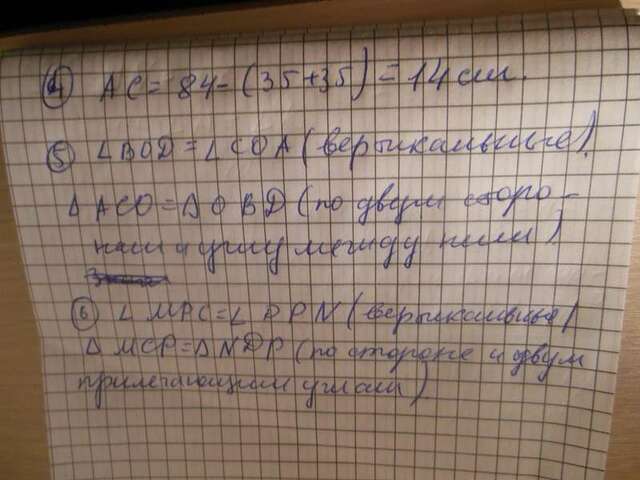 ④ AC = 84 - (35+35) = 14 см.
⑤ ∠BOD = ∠COA (вертикальные)
Δ ACO = Δ OBD (по двум сторо-
нам и углу между ними)
⑥ ∠ MPC = ∠ DPN (вертикальные)
Δ MCP = Δ NDP (по стороне и двум
прилегающим углам)